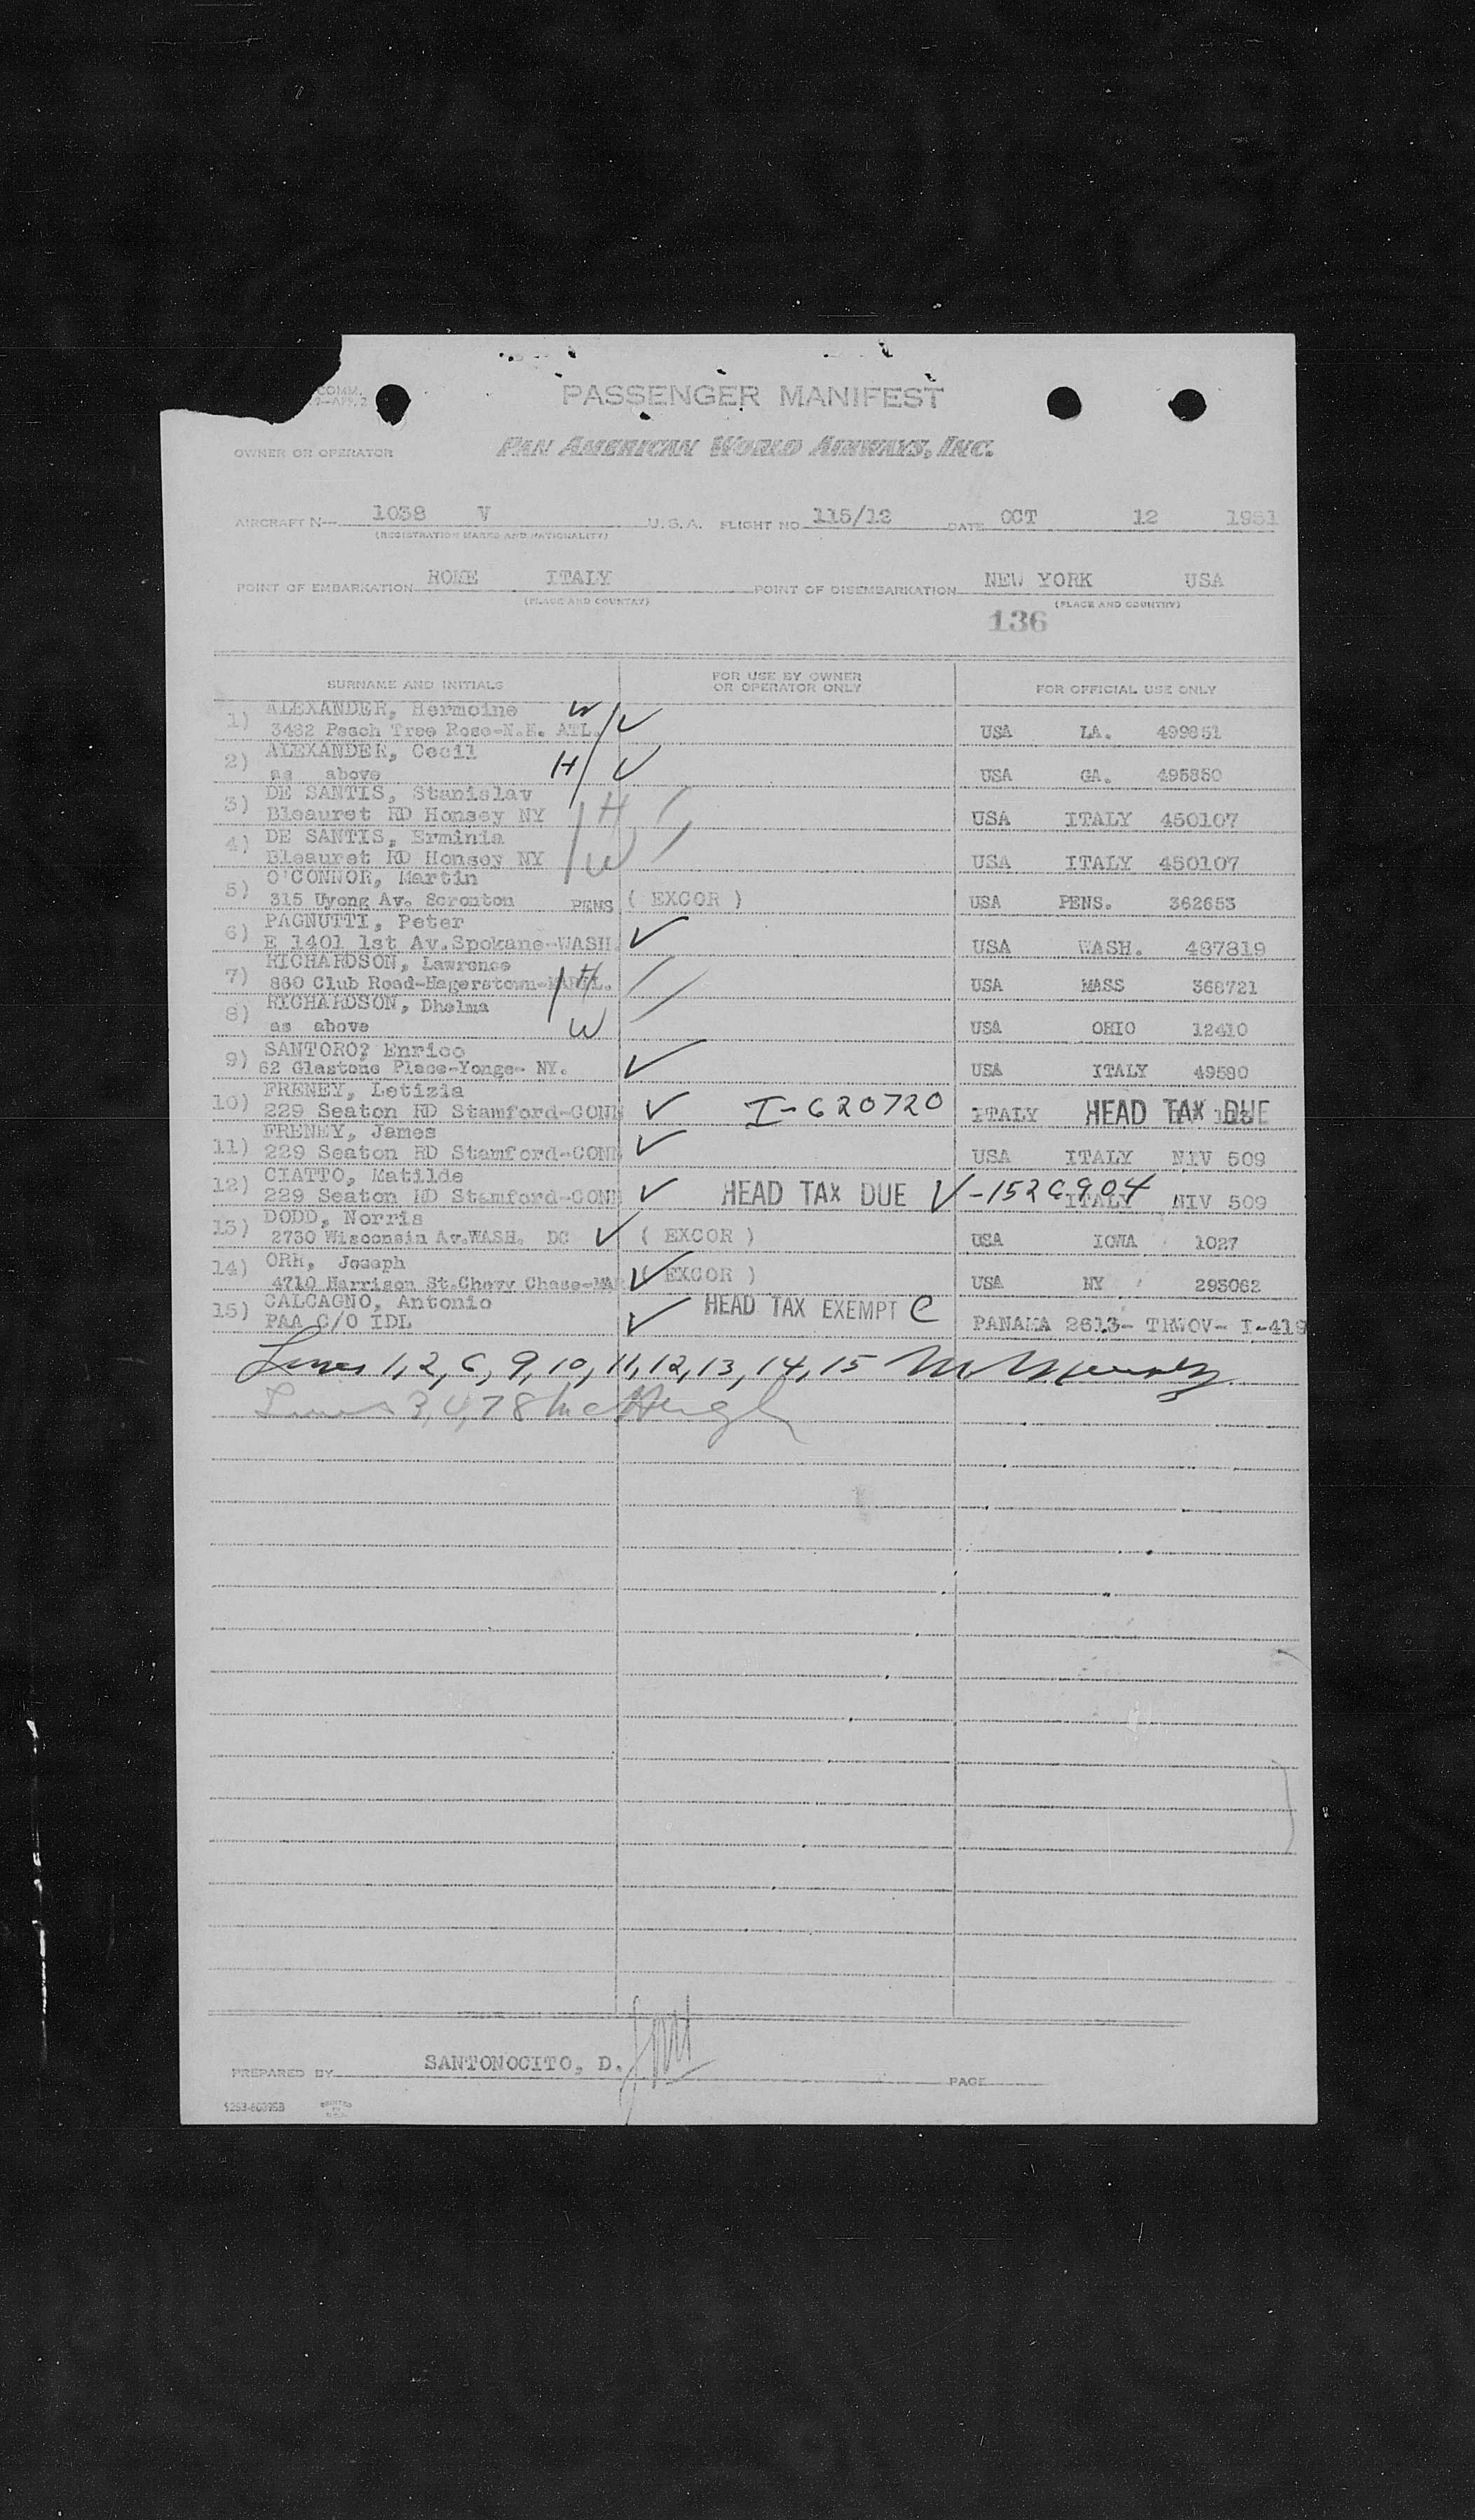 COMM.
PASSENGER MANIFEST
OWNER OR OPERATOR PAN AMERICAN WORLD AIRWAYS, INC.
AIRCRAFT N— 1038 V U.S.A. FLIGHT NO 115/12 DATE OCT 12 1951
(REGISTRATION MARKS AND NATIONALITY)
POINT OF EMBARKATION ROME ITALY POINT OF DISEMBARKATION NEW YORK USA
(PLACE AND COUNTRY) (PLACE AND COUNTRY)
136
SURNAME AND INITIALS FOR USE BY OWNER OR OPERATOR ONLY FOR OFFICIAL USE ONLY
1) ALEXANDER, Hermoine W
3482 Peach Tree Rose-N.E. ATL. ✓ USA LA. 499851
2) ALEXANDER, Cecil
as above H ✓ USA GA. 495850
3) DE SANTIS, Stanislav
Bleauret RD Honsey NY H USA ITALY 450107
4) DE SANTIS, Erminia
Bleauret RD Honsey NY W USA ITALY 450107
5) O'CONNOR, Martin
315 Uyong Av. Scronton PENS ( EXCOR ) USA PENS. 362653
6) PAGNUTTI, Peter
E 1401 1st Av.Spokane-WASH. ✓ USA WASH. 487819
7) RICHARDSON, Lawrence
860 Club Road-Hagerstown- H USA MASS 368721
8) RICHARDSON, Dhelma
as above W USA OHIO 12410
9) SANTORO? Enrico
62 Glastone Place-Yonge- NY. ✓ USA ITALY 49580
10) FRENEY, Letizia
229 Seaton RD Stamford-CONN ✓ I-620720 ITALY HEAD TAX DUE
11) FRENEY, James
229 Seaton RD Stamford-CONN ✓ USA ITALY NIV 509
12) CIATTO, Matilde
229 Seaton RD Stamford-CONN ✓ HEAD TAX DUE V-1526904 ITALY NIV 509
13) DODD, Norris
2730 Wisconsin Av.WASH. DC ✓ ( EXCOR ) USA IOWA 1027
14) ORR, Joseph
4710 Harrison St.Chevy Chase-MAR ✓ ( EXCOR ) USA NY 293062
15) CALCAGNO, Antonio
PAA C/O IDL ✓ HEAD TAX EXEMPT C PANAMA 2613- TRWOV- I-419
Lines 1,2,6,9,10,11,12,13,14,15
Lines 3,4,7 8 McHugh
PREPARED BY SANTONOCITO, D. PAGE